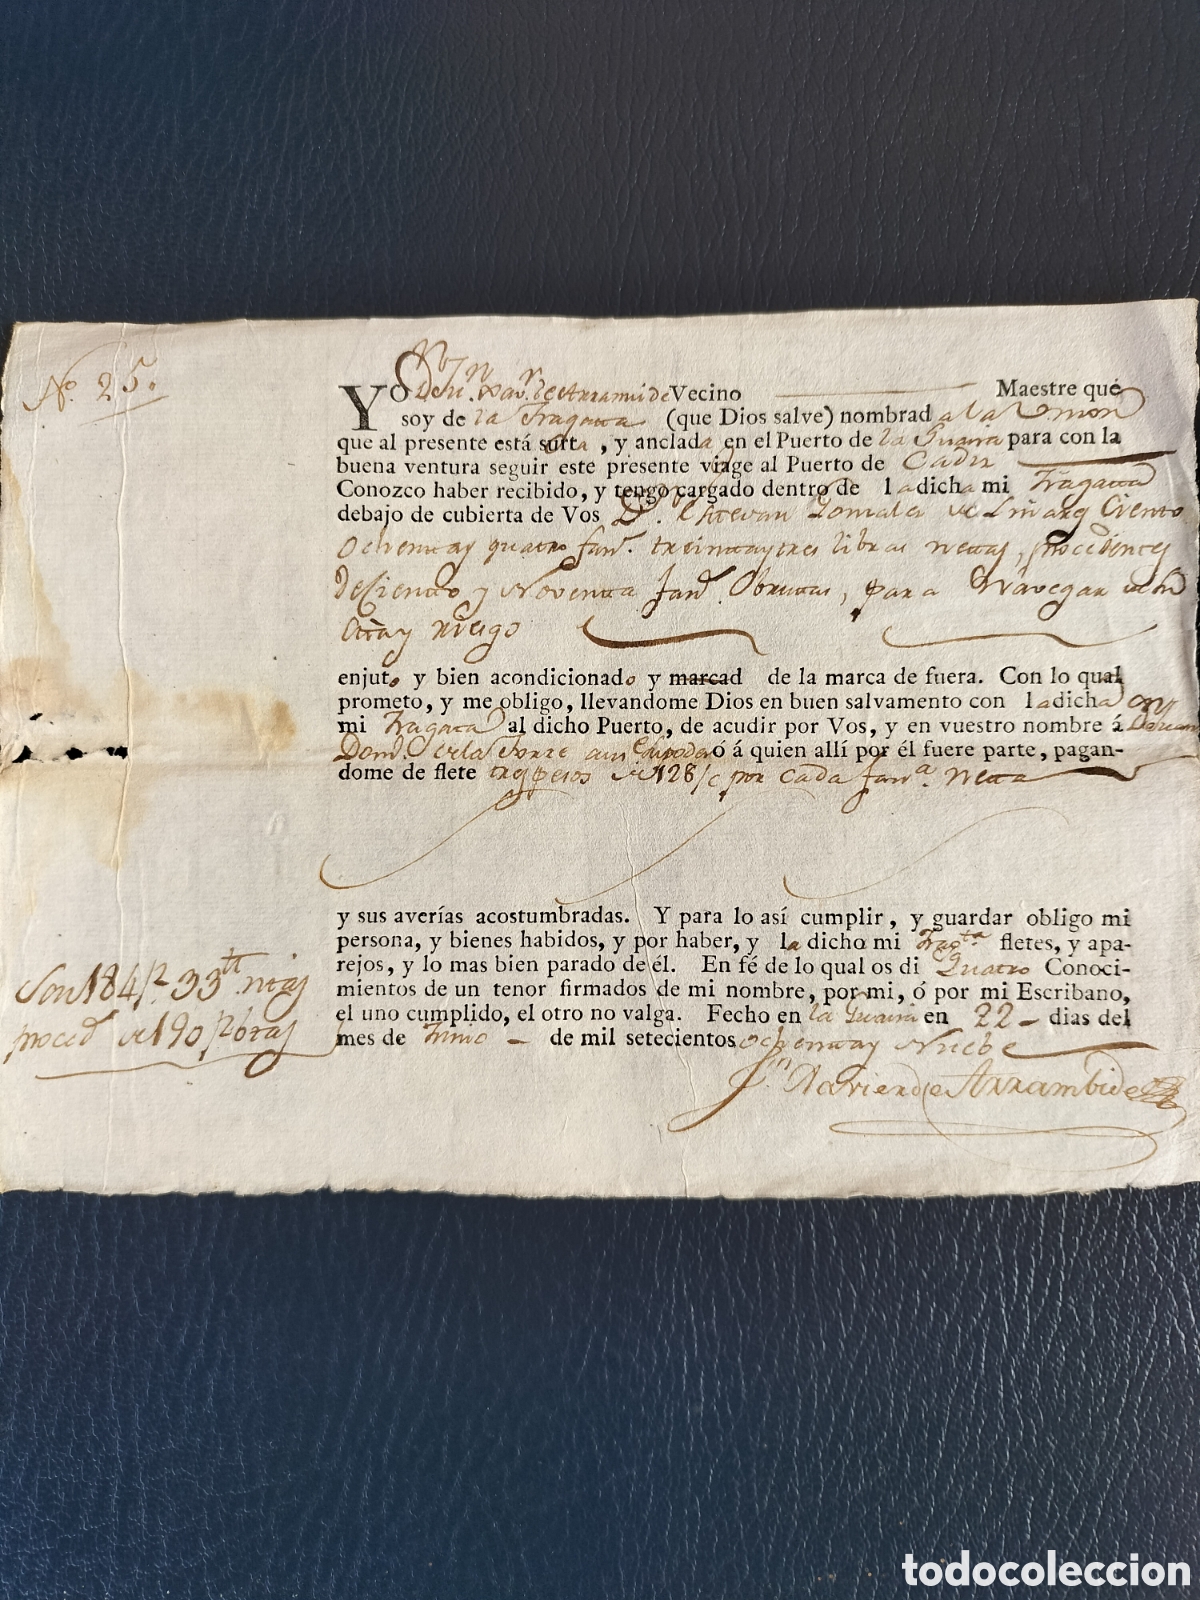 Nº. 25.
Yo Dn. Jn. Xavr. de Arrambide Vecino Maestre que
soy de la Fragata (que Dios salve) nombrad a la Union
que al presente está sotta, y anclada en el Puerto de la Guaira para con la
buena ventura seguir este presente viage al Puerto de Cadiz
Conozco haber recibido, y tengo cargado dentro de la dicha mi Fragata
debajo de cubierta de Vos Dn. Estevan Gonzalez de Linares Ciento
Ochenta y quatro fan. treinta y tres libras netas, procedentes
de Ciento y Noventa fan. Obrutas, para Navegar
y riesgo
enjuto y bien acondicionado y marcad de la marca de fuera. Con lo qual
prometo, y me obligo, llevandome Dios en buen salvamento con la dicha
mi Fragata al dicho Puerto, de acudir por Vos, y en vuestro nombre á
de la Torre ó á quien allí por él fuere parte, pagan-
dome de flete tres pesos de 128/c por cada fana. neta
y sus averías acostumbradas. Y para lo así cumplir, y guardar obligo mi
persona, y bienes habidos, y por haber, y la dicho mi Fragta. fletes, y apa-
rejos, y lo mas bien parado de él. En fé de lo qual os di Quatro Conoci-
mientos de un tenor firmados de mi nombre, por mi, ó por mi Escribano,
el uno cumplido, el otro no valga. Fecho en la Guaira en 22 dias del
mes de Junio de mil setecientos ochenta y Nuebe
Son 184 33 tt netas
proced de 190 brutas
Jn. Xavier de Arrambide
todocoleccion